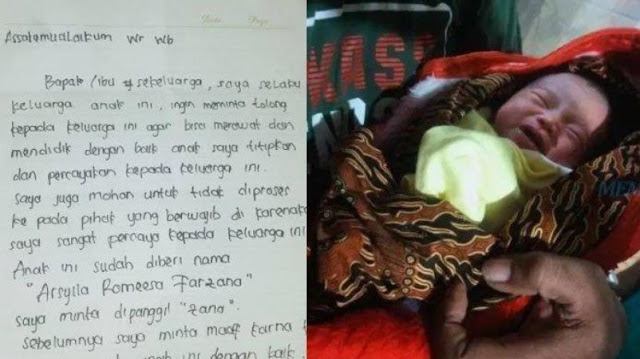 Date Page
Assalamualaikum Wr Wb
Bapak / Ibu sekeluarga, saya selaku
keluarga anak ini, ingin meminta tolong
kepada keluarga ini agar bisa merawat dan
mendidik dengan baik anak saya titipkan
dan percayakan kepada keluarga ini.
Saya juga mohon untuk tidak diproses
ke pada pihak yang berwajib di karenaka
saya sangat percaya kepada keluarga ini
Anak ini sudah diberi nama
"Arsylla Romeesa Farzana"
saya minta dipanggil "Zana".
sebelumnya saya minta maaf karna
ini dengan baik.
KASE